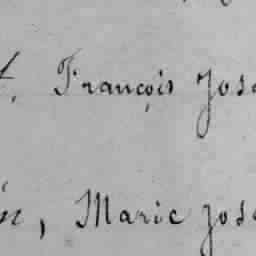 t, François Jose
in, Marie Jose